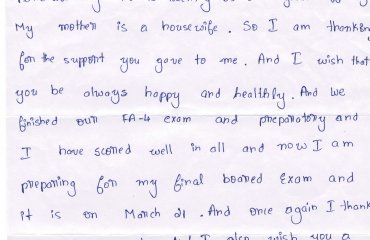 My mother is a housewife. So I am thanking
for the support you gave to me. And I wish that
you be always happy and healthfly. And we
finished our FA-4 exam and preparatory and
I have scored well in all and now I am
preparing for my final boared exam and
it is on March 21. And once again I thank
And I also wish you a